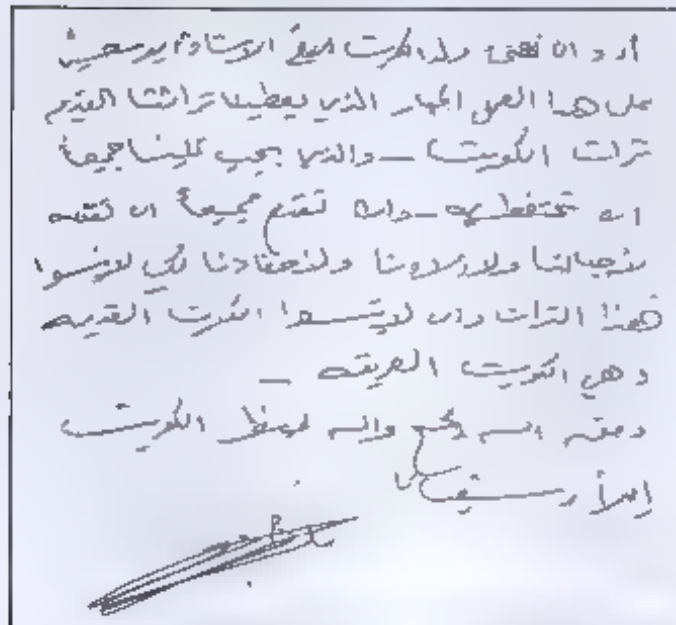 أود ان نهنئ ولد الكويت الاستاذ
على هذا العمل الجبار الذي يعطينا تراثنا القديم
تراث الكويت - والذي يجب علينا جميعاً
ان نحتفظ به - وان نقدم جميعاً ان نقدمه
لأجيالنا ولأولادنا ولأحفادنا لكي لا ينسوا
هذا التراث وان لا ينسوا الكويت القديمه
وهي الكويت العريقه -
وفقه الله والله يحفظ الكويت